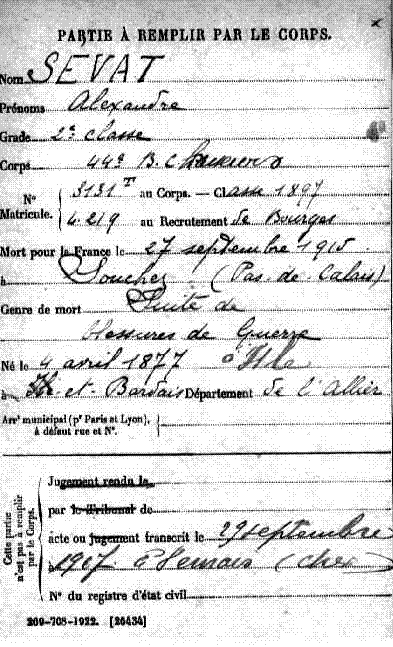 PARTIE À REMPLIR PAR LE CORPS.
Nom SEVAT
Prénoms Alexandre
Grade 2e classe
Corps 44e B. Chasseurs
N° Matricule. 3131 T au Corps. — Classe 1897
4.219 au Recrutement de Bourges
Mort pour la France le 27 septembre 1915
à Souchez (Pas de Calais)
Genre de mort Suite de
blessures de Guerre
Né le 4 avril 1877 à Isle
à et-Bardais Département de l'Allier
Arr^t municipal (p^r Paris et Lyon), à défaut rue et N°.
Cette partie n'est pas à remplir par le Corps.
Jugement rendu le
par le Tribunal de
acte ou jugement transcrit le 29 septembre
à (Cher)
N° du registre d'état civil
209-708-1922. [26434]